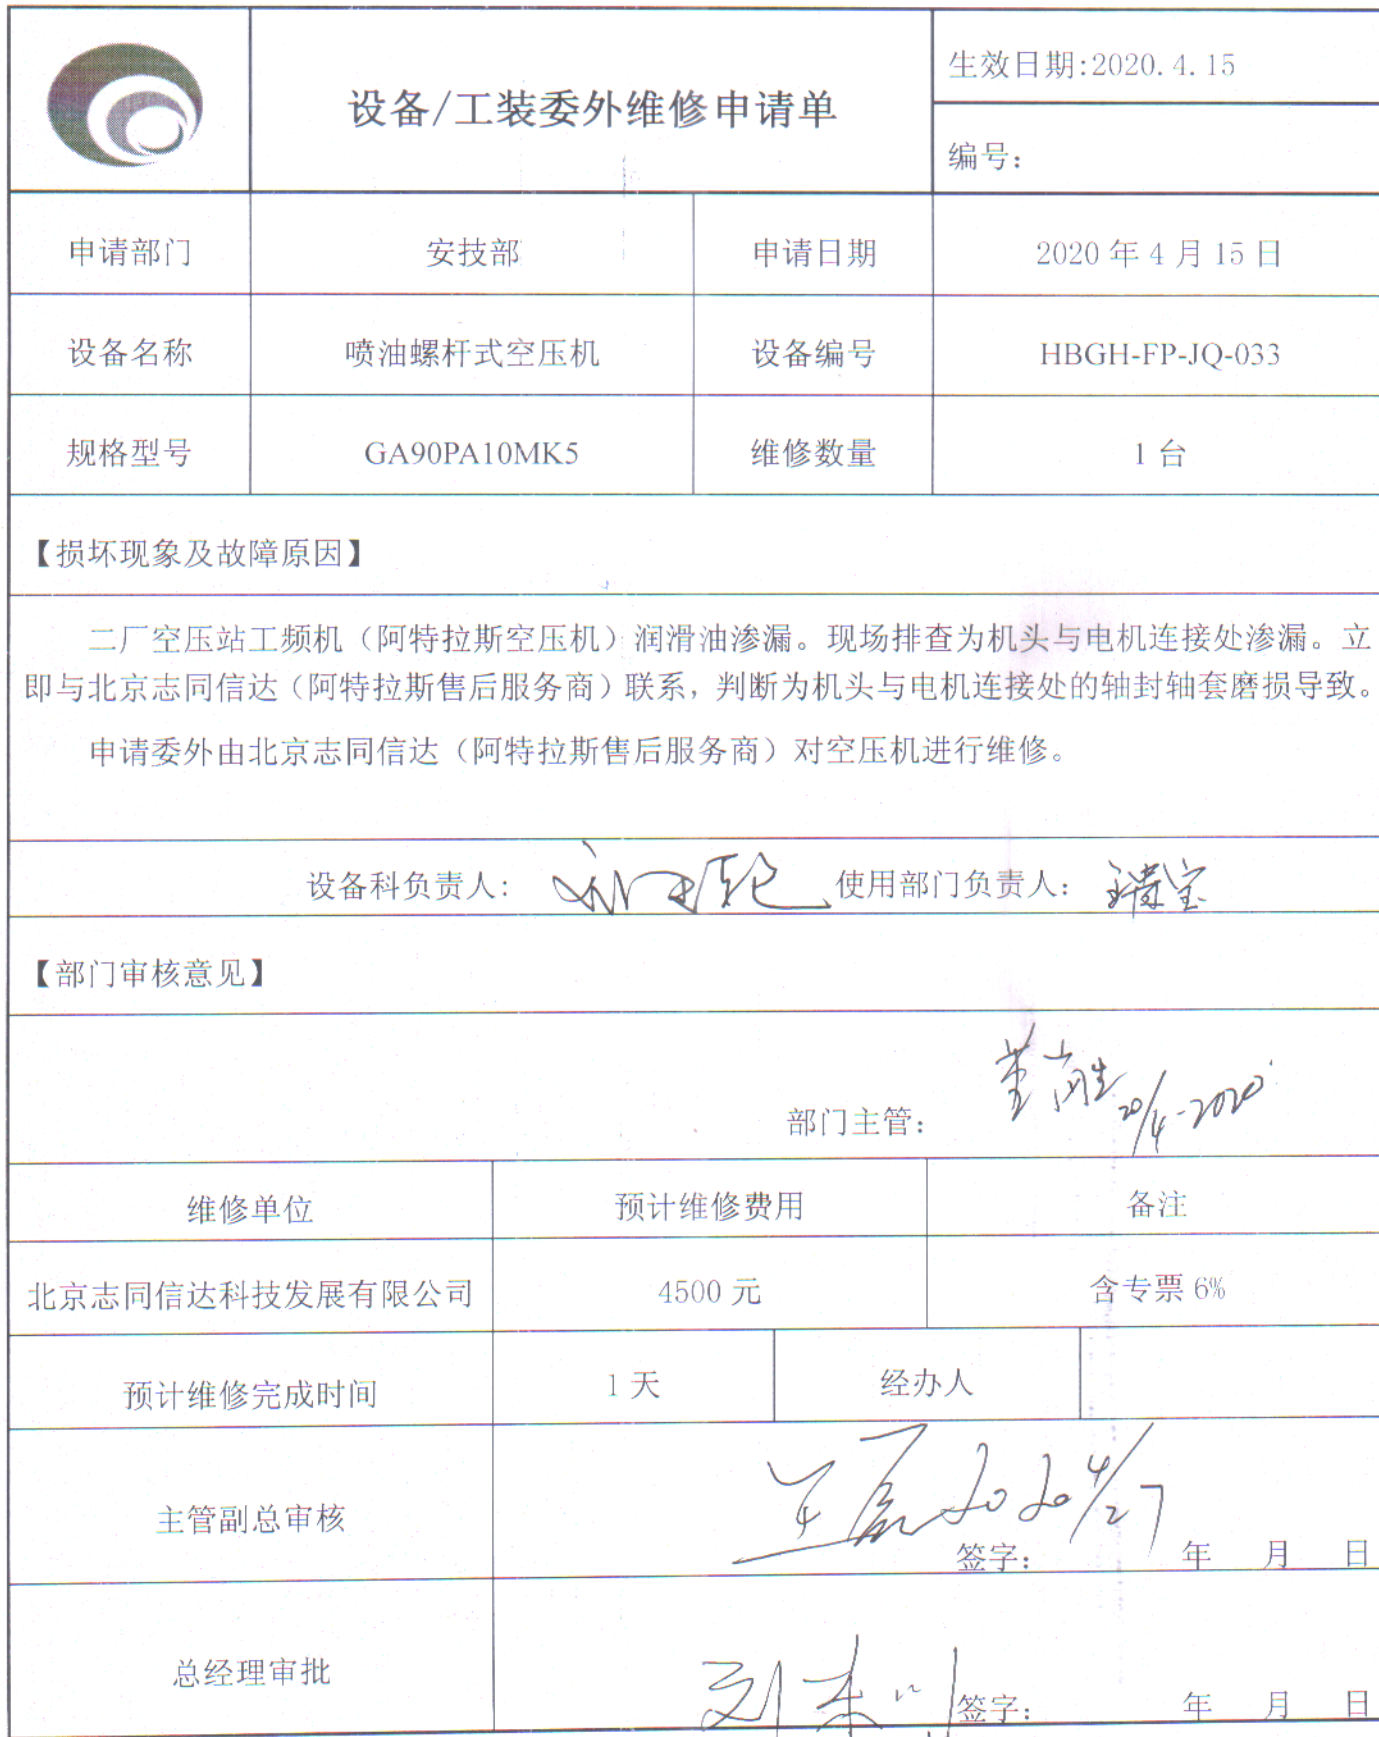 设备/工装委外维修申请单
生效日期:2020.4.15
编号：
申请部门 安技部 申请日期 2020 年 4 月 15 日
设备名称 喷油螺杆式空压机 设备编号 HBGH-FP-JQ-033
规格型号 GA90PA10MK5 维修数量 1 台
【损坏现象及故障原因】
二厂空压站工频机（阿特拉斯空压机）润滑油渗漏。现场排查为机头与电机连接处渗漏。立
即与北京志同信达（阿特拉斯售后服务商）联系，判断为机头与电机连接处的轴封轴套磨损导致。
申请委外由北京志同信达（阿特拉斯售后服务商）对空压机进行维修。
设备科负责人： 使用部门负责人：
【部门审核意见】
部门主管： 20/4-2020
维修单位 预计维修费用 备注
北京志同信达科技发展有限公司 4500 元 含专票 6%
预计维修完成时间 1 天 经办人
主管副总审核 2020 4/27
签字： 年 月 日
总经理审批 签字： 年 月 日